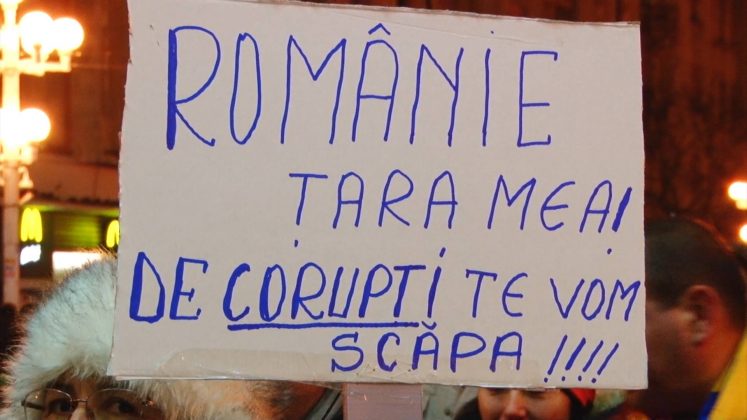 ROMÂNIE
ȚARA MEA!
DE CORUPTI TE VOM
SCĂPA !!!!